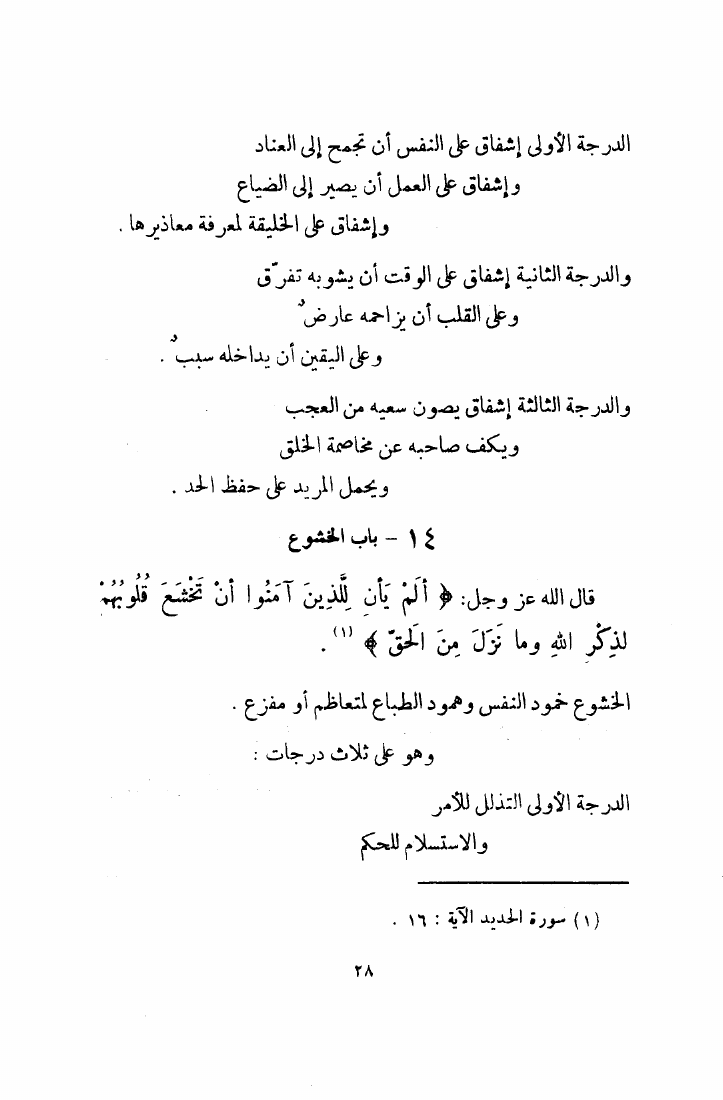 الدرجة الأولى إشفاق على النفس أن تجمح إلى العناد
وإشفاق على العمل أن يصير إلى الضياع
وإشفاق على الخليقة لمعرفة معاذيرها .
والدرجة الثانية إشفاق على الوقت أن يشوبه تفرّق
وعلى القلب أن يزاحمه عارضٌ
وعلى اليقين أن يداخله سببٌ .
والدرجة الثالثة إشفاق يصون سعيه من العجب
ويكف صاحبه عن مخاصمة الخلق
ويحمل المريد على حفظ الحد .
١٤ - باب الخشوع
قال الله عز وجل: ﴿ ألَمْ يَأنِ لِلَّذِينَ آمَنُوا أنْ تَخْشَعَ قُلُوبُهُمْ
لذِكْرِ اللهِ وما نَزَلَ مِنَ الَحقّ ﴾ (١) .
الخشوع خمود النفس وهمود الطباع لمتعاظم أو مفزع .
وهو على ثلاث درجات :
الدرجة الأولى التذلل للأمر
والاستسلام للحكم
(١) سورة الحديد الآية : ١٦ .
٢٨